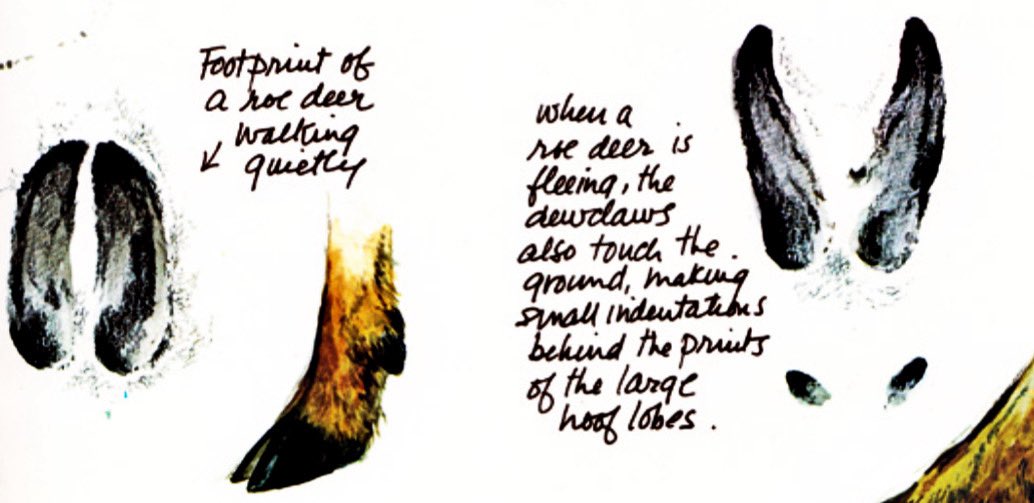 Footprint of
a roe deer
walking
quietly
when a
roe deer is
fleeing, the
dewclaws
also touch the
ground, making
small indentations
behind the prints
of the large
hoof lobes.